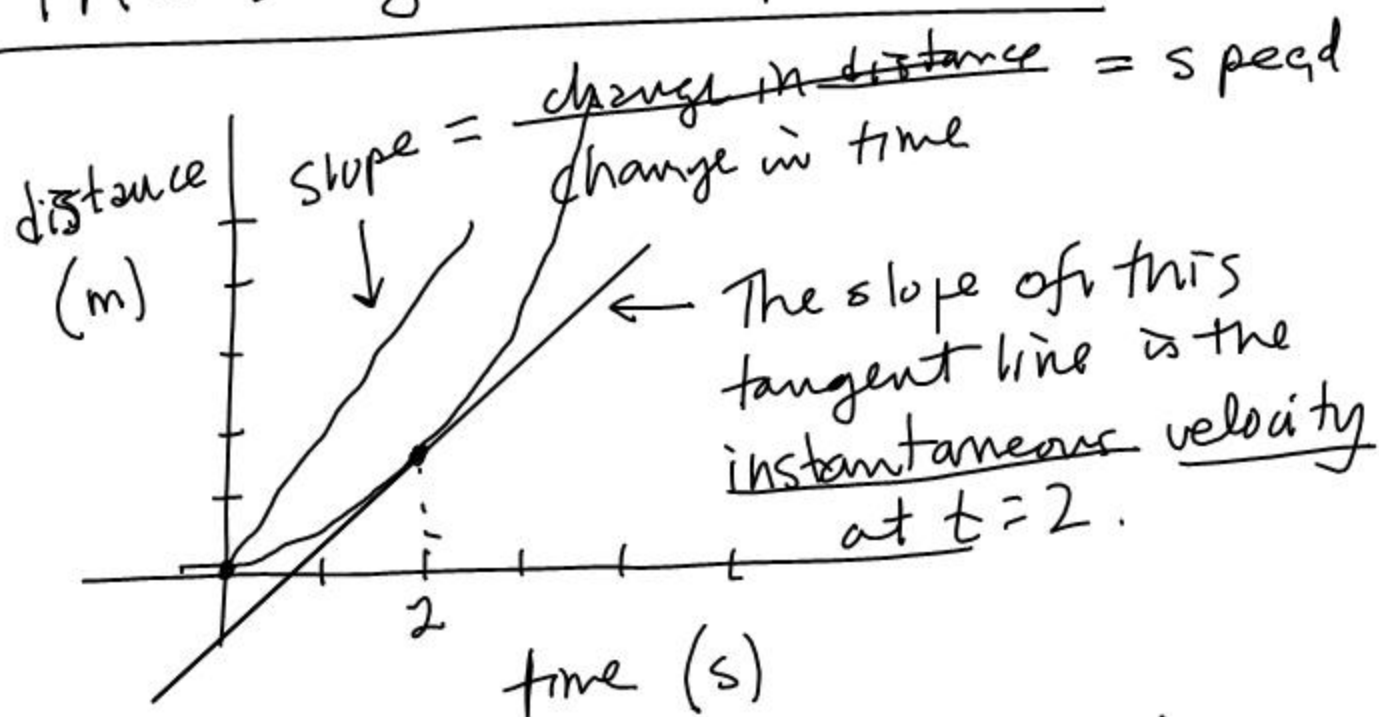 slope = change in distance / change in time = speed
distance
(m)
The slope of this
tangent line is the
instantaneous velocity
at t = 2.
2
time (s)